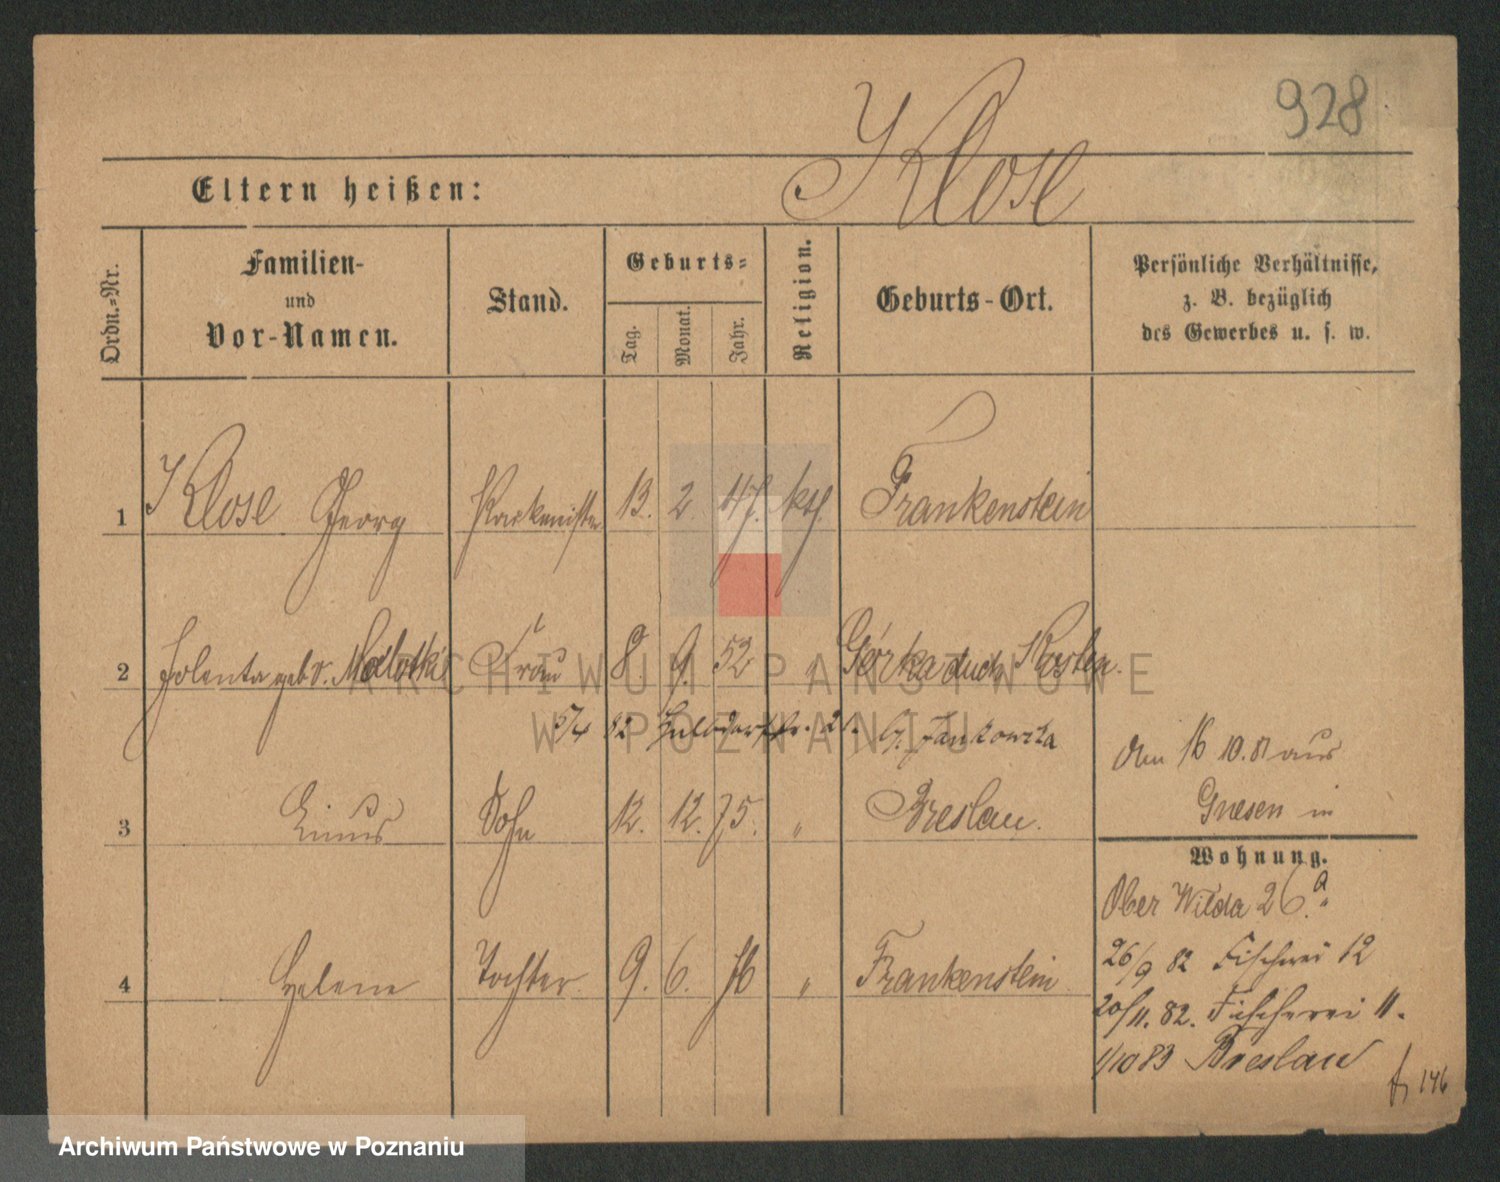 928
Klose
Eltern heißen:
Ordn.-Nr.
Familien-
und
Vor-Namen.
Stand.
Geburts-
Tag.
Monat.
Jahr.
Religion.
Geburts-Ort.
Persönliche Verhältnisse,
z. B. bezüglich
des Gewerbes u. s. w.
1 Klose Georg 13. 2 47. kth. Frankenstein
2 Jolenta geb. v. Frau 8. 9. 52 " Górka duch
5/4 82 21. Jankowska
Am 16 10. 81 aus
Gnesen in
3 Sohn 12. 12. 75. " Breslau.
Wohnung.
Ober Wilda 26.a
4 Helene Tochter. 9. 6. 76 " Frankenstein
26/9 82 Fischerei 12
20/11. 82. Fischerei 11.
1/10 83 Breslau
146
ARCHIWUM PAŃSTWOWE
W POZNANIU
Archiwum Państwowe w Poznaniu